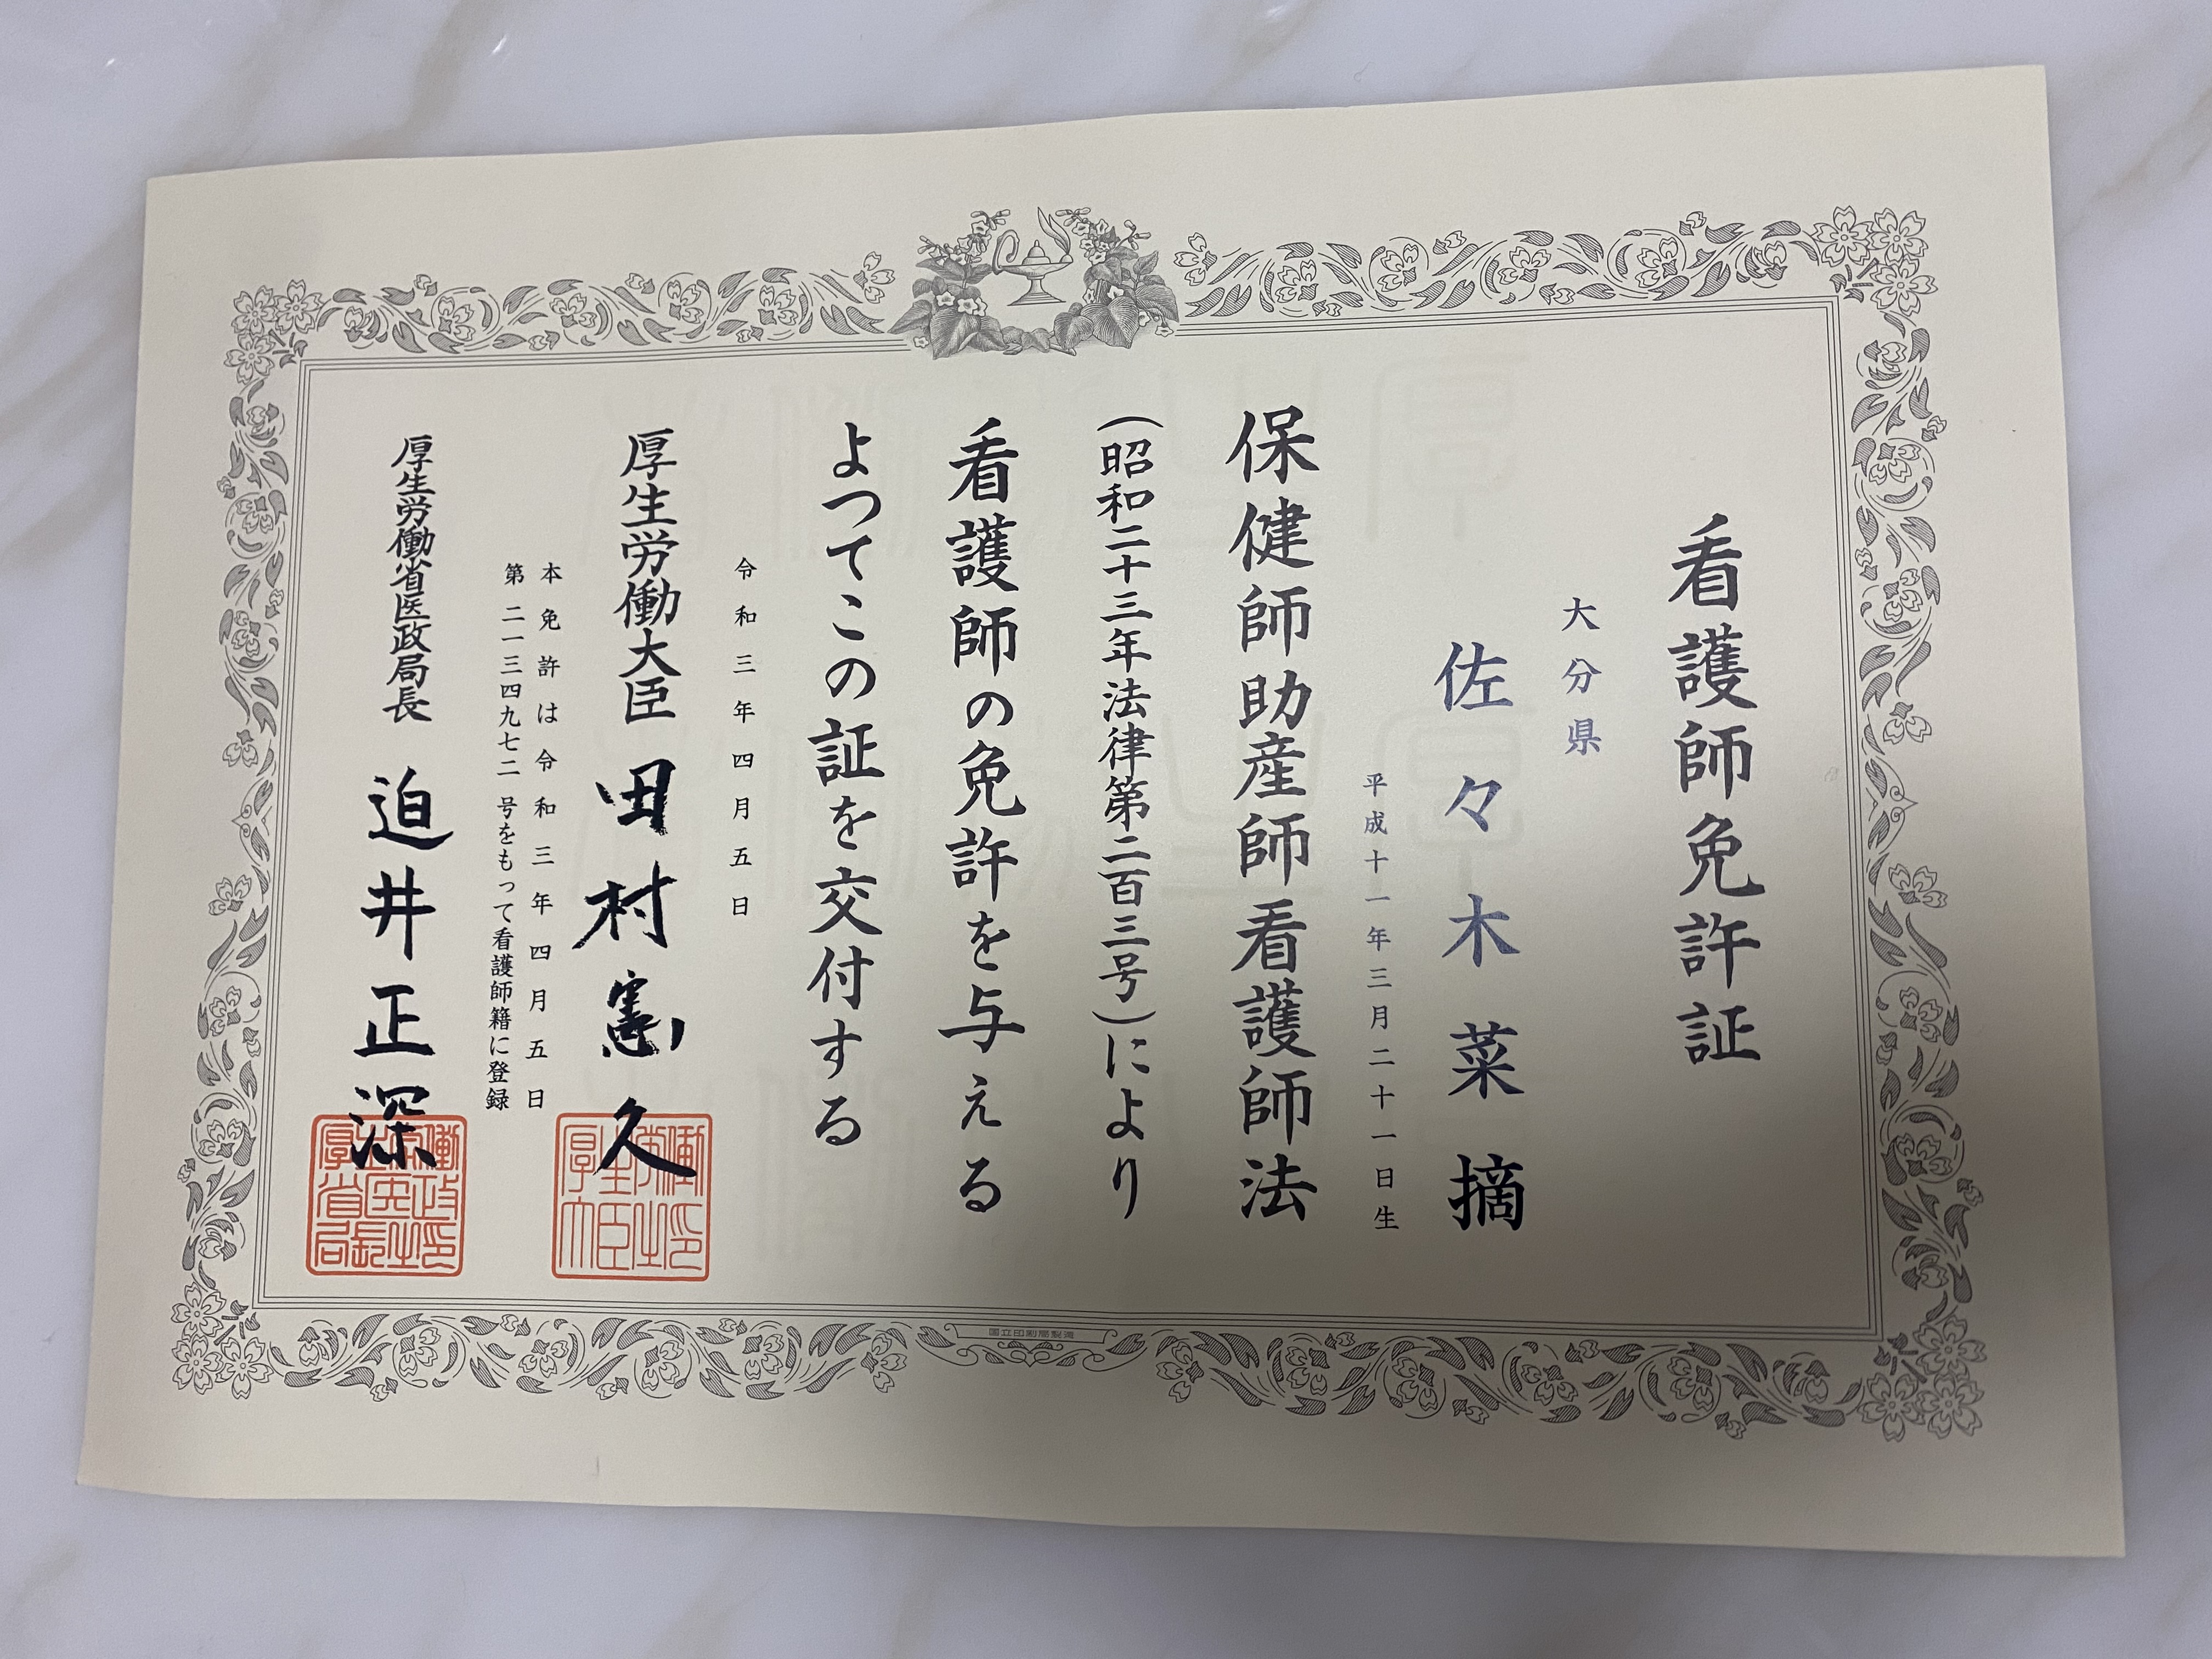 看護師免許証
大分県
佐々木菜摘
平成十一年三月二十一日生
保健師助産師看護師法
(昭和二十三年法律第二百三号)により
看護師の免許を与える
よつてこの証を交付する
令和三年四月五日
厚生労働大臣 田村憲久
本免許は令和三年四月五日
第二一三四九七二号をもって看護師籍に登録
厚生労働省医政局長 迫井正深
国立印刷局製造